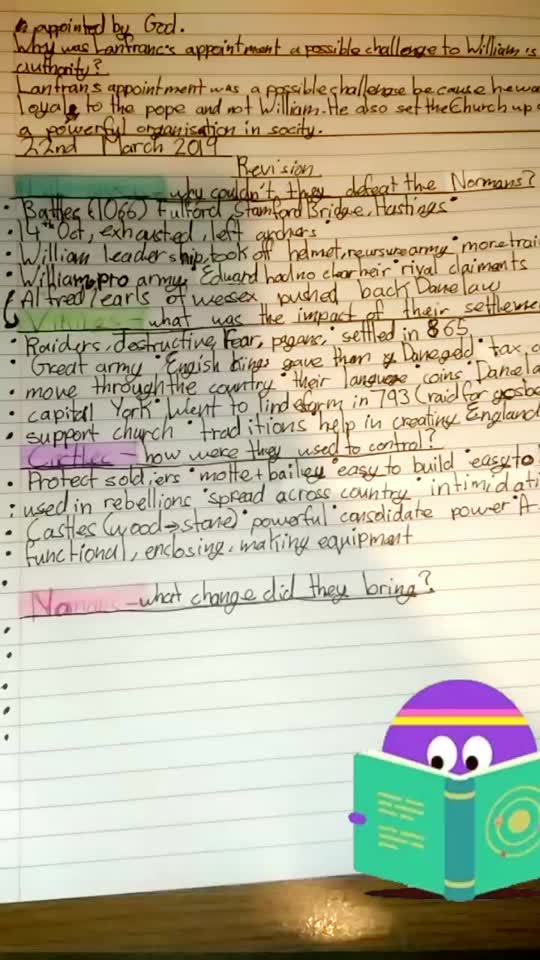 appointed by God.
Why was Lanfranc's appointment a possible challenge to William's
authority?
Lanfrans appointment was a possible challenge because he was
Loyal to the pope and not William. He also set the Church up
a powerful organisation in socity.
22nd March 2019
Revision
- why couldn't they defeat the Normans?
• Battles (1066) Fulford, Stamford Bridge, Hastings •
• 14th Oct, exhausted, left archers •
• William leadership, took off helmet, army • more
• William, pro army, Eduard had no clear heir • rival claimants
Alfred/earls of wessex pushed back Danelaw
Vikings - what was the impact of their
• Raiders, destructive, fear, pagans, • settled in 865
• Great army • English kings gave them Danegeld • tax
• move through the country • their language • coins
• capital York • went to in 793 (raid for
• support church • traditions help in creating England
Castles - how were they used to control?
• Protect soldiers • motte + bailey • easy to build • easy to
• used in rebellions • spread across country •
• Castles (wood → stone) • powerful • power • A
• functional, enclosing, making equipment
Normans - what change did they bring?